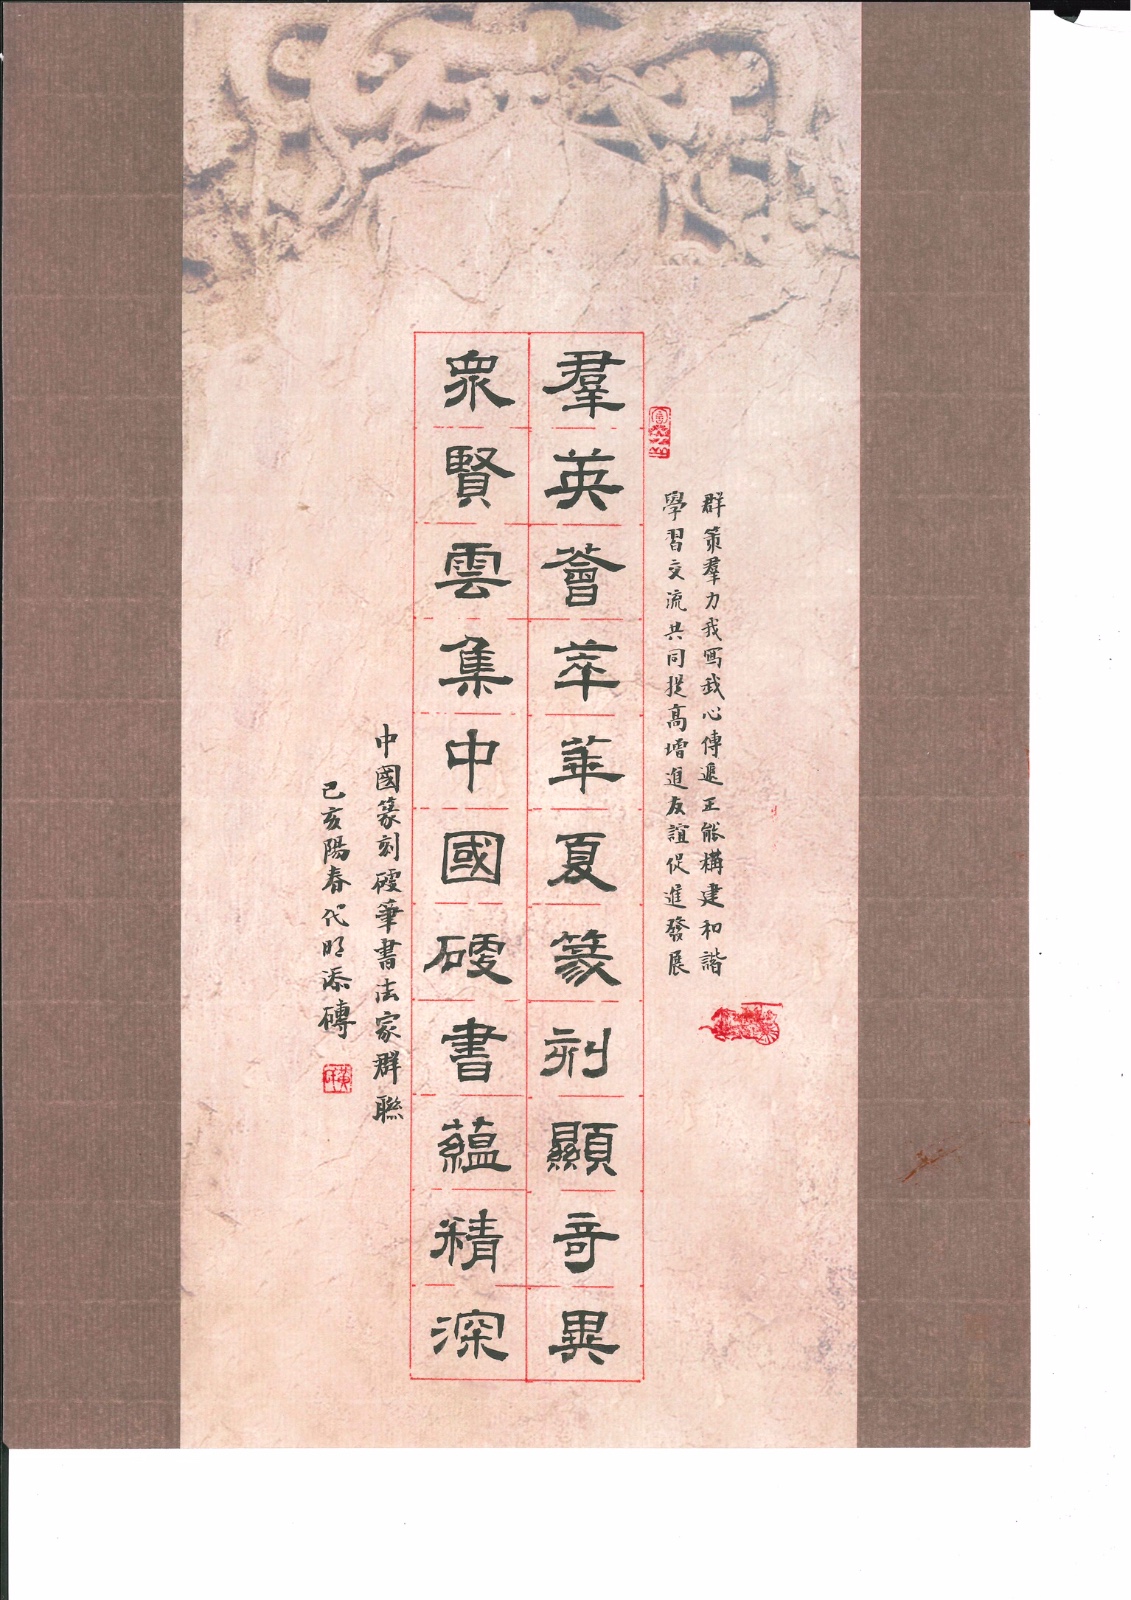 群策羣力我寫我心傳遞正能構建和諧
學習交流共同提高增進友誼促進發展
羣英薈萃華夏篆刻顯奇異
衆賢雲集中國硬書蘊精深
中國篆刻硬筆書法家群聯
己亥陽春代明添磚